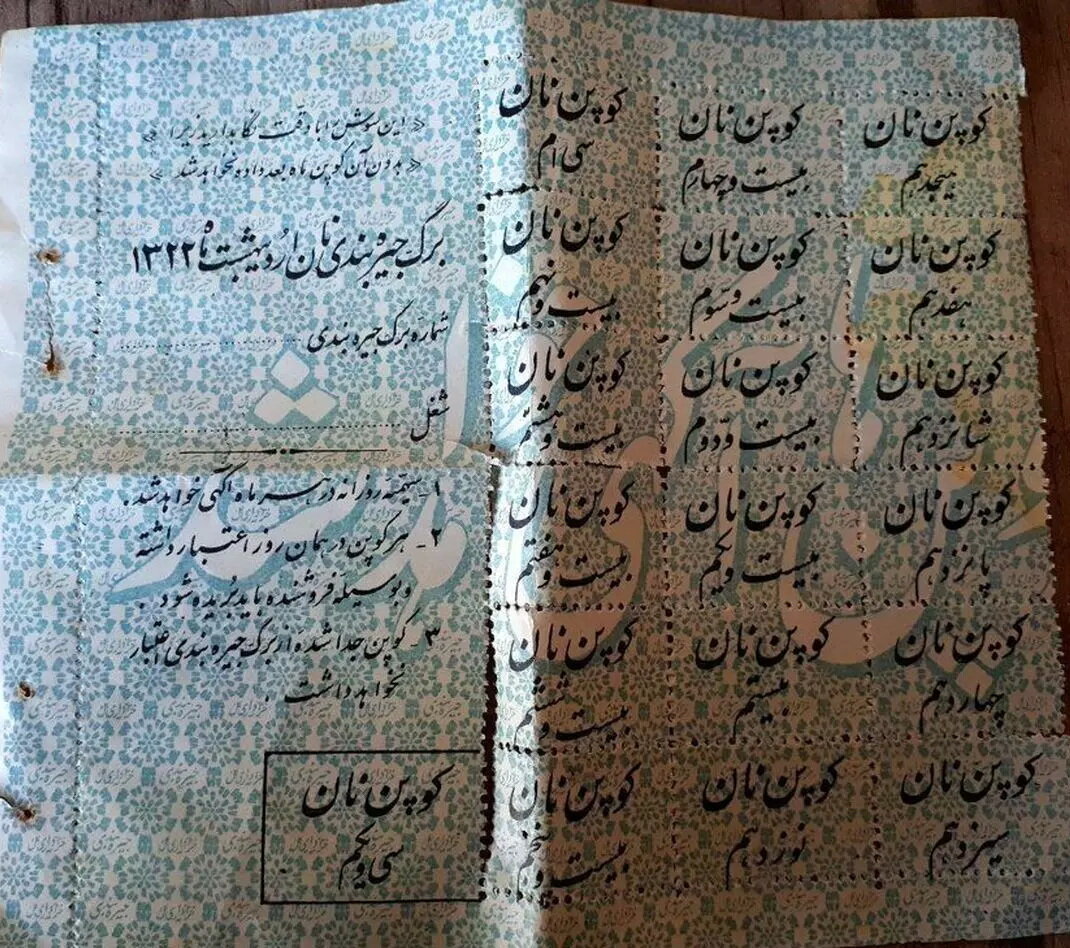 « این سوش را با دقت نگاهدارید زیرا »
« بدون آن کوپن ماه بعد داده نخواهد شد »
برگ جیره بندی نان اردیبهشت ماه ۱۳۲۲
شماره برگ جیره بندی
شغل
۱- سهمیه روزانه در هر ماه آگهی خواهد شد .
۲- هر کوپن در همان روز اعتبار داشته
و بوسیله فروشنده باید بریده شود .
۳- کوپن جدا شده از برگ جیره بندی اعتبار
نخواهد داشت .
کوپن نان
هیجدهم
کوپن نان
بیست و چهارم
کوپن نان
سی ام
کوپن نان
هفدهم
کوپن نان
بیست و سوم
کوپن نان
بیست و نهم
کوپن نان
شانزدهم
کوپن نان
بیست و دوم
کوپن نان
بیست و هشتم
کوپن نان
پانزدهم
کوپن نان
بیست و یکم
کوپن نان
بیست و هفتم
کوپن نان
چهاردهم
کوپن نان
بیستم
کوپن نان
بیست و ششم
کوپن نان
سیزدهم
کوپن نان
نوزدهم
کوپن نان
بیست و پنجم
کوپن نان
سی و یکم